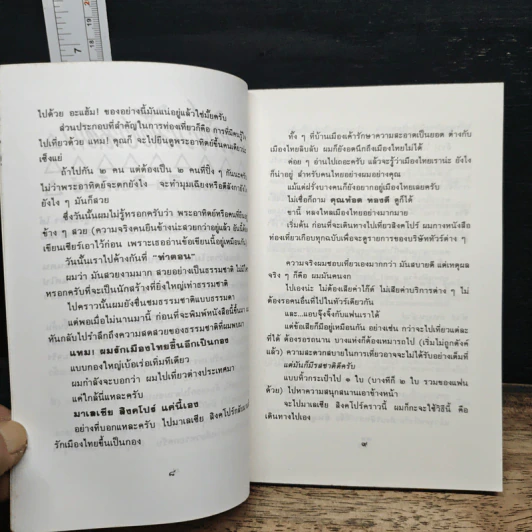 ไปด้วย อะแฮ้ม! ของอย่างนี้มันแน่อยู่แล้วใช่มั้ยครับ
ส่วนประกอบที่สำคัญในการท่องเที่ยวก็คือ การที่มีคนรู้ใจ
ไปเที่ยวด้วย แหม! คุณก็ จะไปยืนดูพระอาทิตย์ขึ้นคนเดียว
เซ็งแย่
ถ้าไปกัน ๒ คน แต่ต้องเป็น ๒ คนที่ปิ๊ง ๆ กันนะครับ
ไม่ว่าพระอาทิตย์จะตกยังไง จะทำมุมเฉียงหรือตีลังกา
ยังไง ๆ มันก็สวย
ซึ่งวันนั้นผมไม่รู้หรอกครับว่า พระอาทิตย์หรือคนที่ยืน
ข้าง ๆ สวย (ความจริงคนยืนข้างน่ะสวยกว่าอยู่แล้ว อันนี้
เขียนเชียร์เอาไว้ก่อน เพราะเธออ่านข้อเขียนนี้อยู่เหมือนกัน)
วันนั้นเราไปค้างกันที่ "ท่าตอน"
ผมว่า มันสวยงามมาก สวยอย่างเป็นธรรมชาติ ไม่
หรอกครับที่จะเป็นนักสร้างที่ยิ่งใหญ่เท่าธรรมชาติ
ไปคราวนั้นผมยังชื่นชมธรรมชาติแบบธรรมดา
แต่พอเมื่อไม่นานมานี้ ก่อนที่จะพิมพ์หนังสือนี้ขึ้นมา
หันกลับไปรำลึกถึงความสดสวยของธรรมชาติที่ผมพบมา
แหม! ผมรักเมืองไทยขึ้นอีกเป็นกอง
แบบกองใหญ่เบ้อเร่อเทิ่มทีเดียว
ผมกำลังจะบอกว่า ผมไปเที่ยวต่างประเทศมา
แค่ใกล้นี่แหละครับ
มาเลเซีย สิงคโปร์ แค่นี้เอง
อย่างที่บอกแหละครับ ไปมาเลเซีย สิงคโปร์กลับมา
รักเมืองไทยขึ้นเป็นกอง
๘
ทั้ง ๆ ที่บ้านเมืองเค้ารักษาความสะอาดเป็นยอด ต่างกับ
เมืองไทยลิบลับ ผมก็ยังอดนึกถึงเมืองไทยไม่ได้
ค่อย ๆ อ่านไปเถอะครับ แล้วจะรู้ว่าเมืองไทยเราน่ะ ยังไง
ก็น่าอยู่ สำหรับคนไทยอย่างผมอย่างคุณ
แม้แต่ฝรั่งบางคนก็ยังอยากอยู่เมืองไทยเลยครับ
ไม่เชื่อก็ถาม คุณท้อด ทองดี ดูก็ได้
ขานี้ หลงไหลเมืองไทยอย่างมากมาย
เริ่มต้น ก่อนที่จะเดินทางไปเที่ยวสิงคโปร์ ผมกางหนังสือ
ท่องเที่ยวเกือบทุกฉบับเพื่อจะดูรายการของบริษัททัวร์ต่าง ๆ
ความจริงผมชอบเที่ยวเองมากกว่า มันสบายดี แต่เหตุผล
จริง ๆ ก็คือ ผมมันคนงก
ไปเองน่ะ ไม่ต้องเสียค่าไก๊ด์ ไม่เสียค่าบริการต่าง ๆ ไม่
ต้องรอคนอื่นที่ไปในทัวร์เดียวกัน
และ...แอบจุ๊งจิ๊งกับแฟนเราได้
แต่ข้อเสียก็มีอยู่เหมือนกัน อย่างเช่น กว่าจะไปเที่ยวแต่ละ
ที่ได้ ต้องรอรถนาน บางแห่งก็ต้องเหมารถไป (เริ่มไม่ถูกตังค์
แล้ว) ความสะดวกสบายในการเที่ยวอาจจะไม่ได้รับอย่างเต็มที่
แต่มันก็มีรสชาติดีครับ
แบบหิ้วกระเป๋าไป ๑ ใบ (บางทีก็ ๒ ใบ รวมของแฟน
ด้วย) ไปหาความสนุกสนานเอาข้างหน้า
จะไปมาเลเซีย สิงคโปร์คราวนี้ ผมก็กะจะใช้วิธีนี้ คือ
เดินทางไปเอง
๙